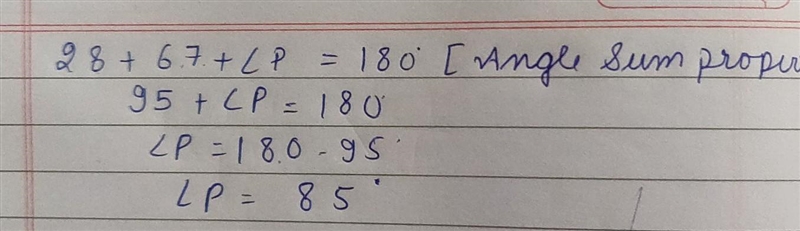 28 + 67 + ∠P = 180° [Angle Sum
95 + ∠P = 180°
∠P = 180 - 95°
∠P = 85°